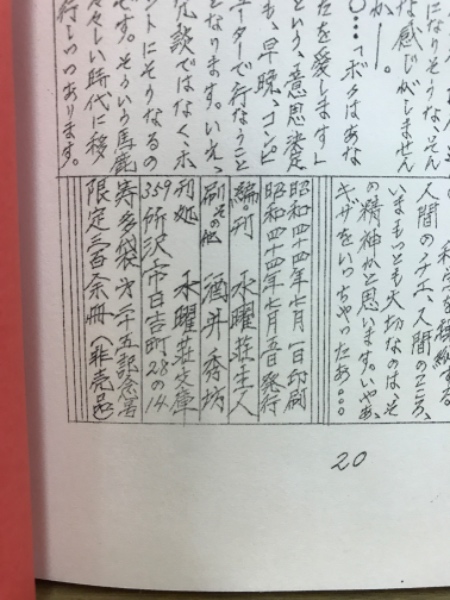 科学を謳歌する
人間のチエ、人間のこころ、
いまもっとも大切なのは、そ
の精神かと思います。いやあ、
キザをいっちゃったあ。。。
になりそうな、そん
な感じがしません
か――。
〇…「ボクはあな
たを愛します」
という、意思決定
も、早晩、コンピ
ューターで行なうこと
となります。いえ、
冗談ではなく、ホ
ントにそうなるの
です。そういう馬鹿
々々しい時代に移
行しつつあります。
昭和四十四年七月一日印刷
昭和四十四年七月五日発行
編。刊 水曜荘主人
刷その他 酒井秀坊
刊処 水曜荘文庫
359 所沢市日吉町28の14
寿多袋 第二十五記念号
限定三百余冊(非売品)
20